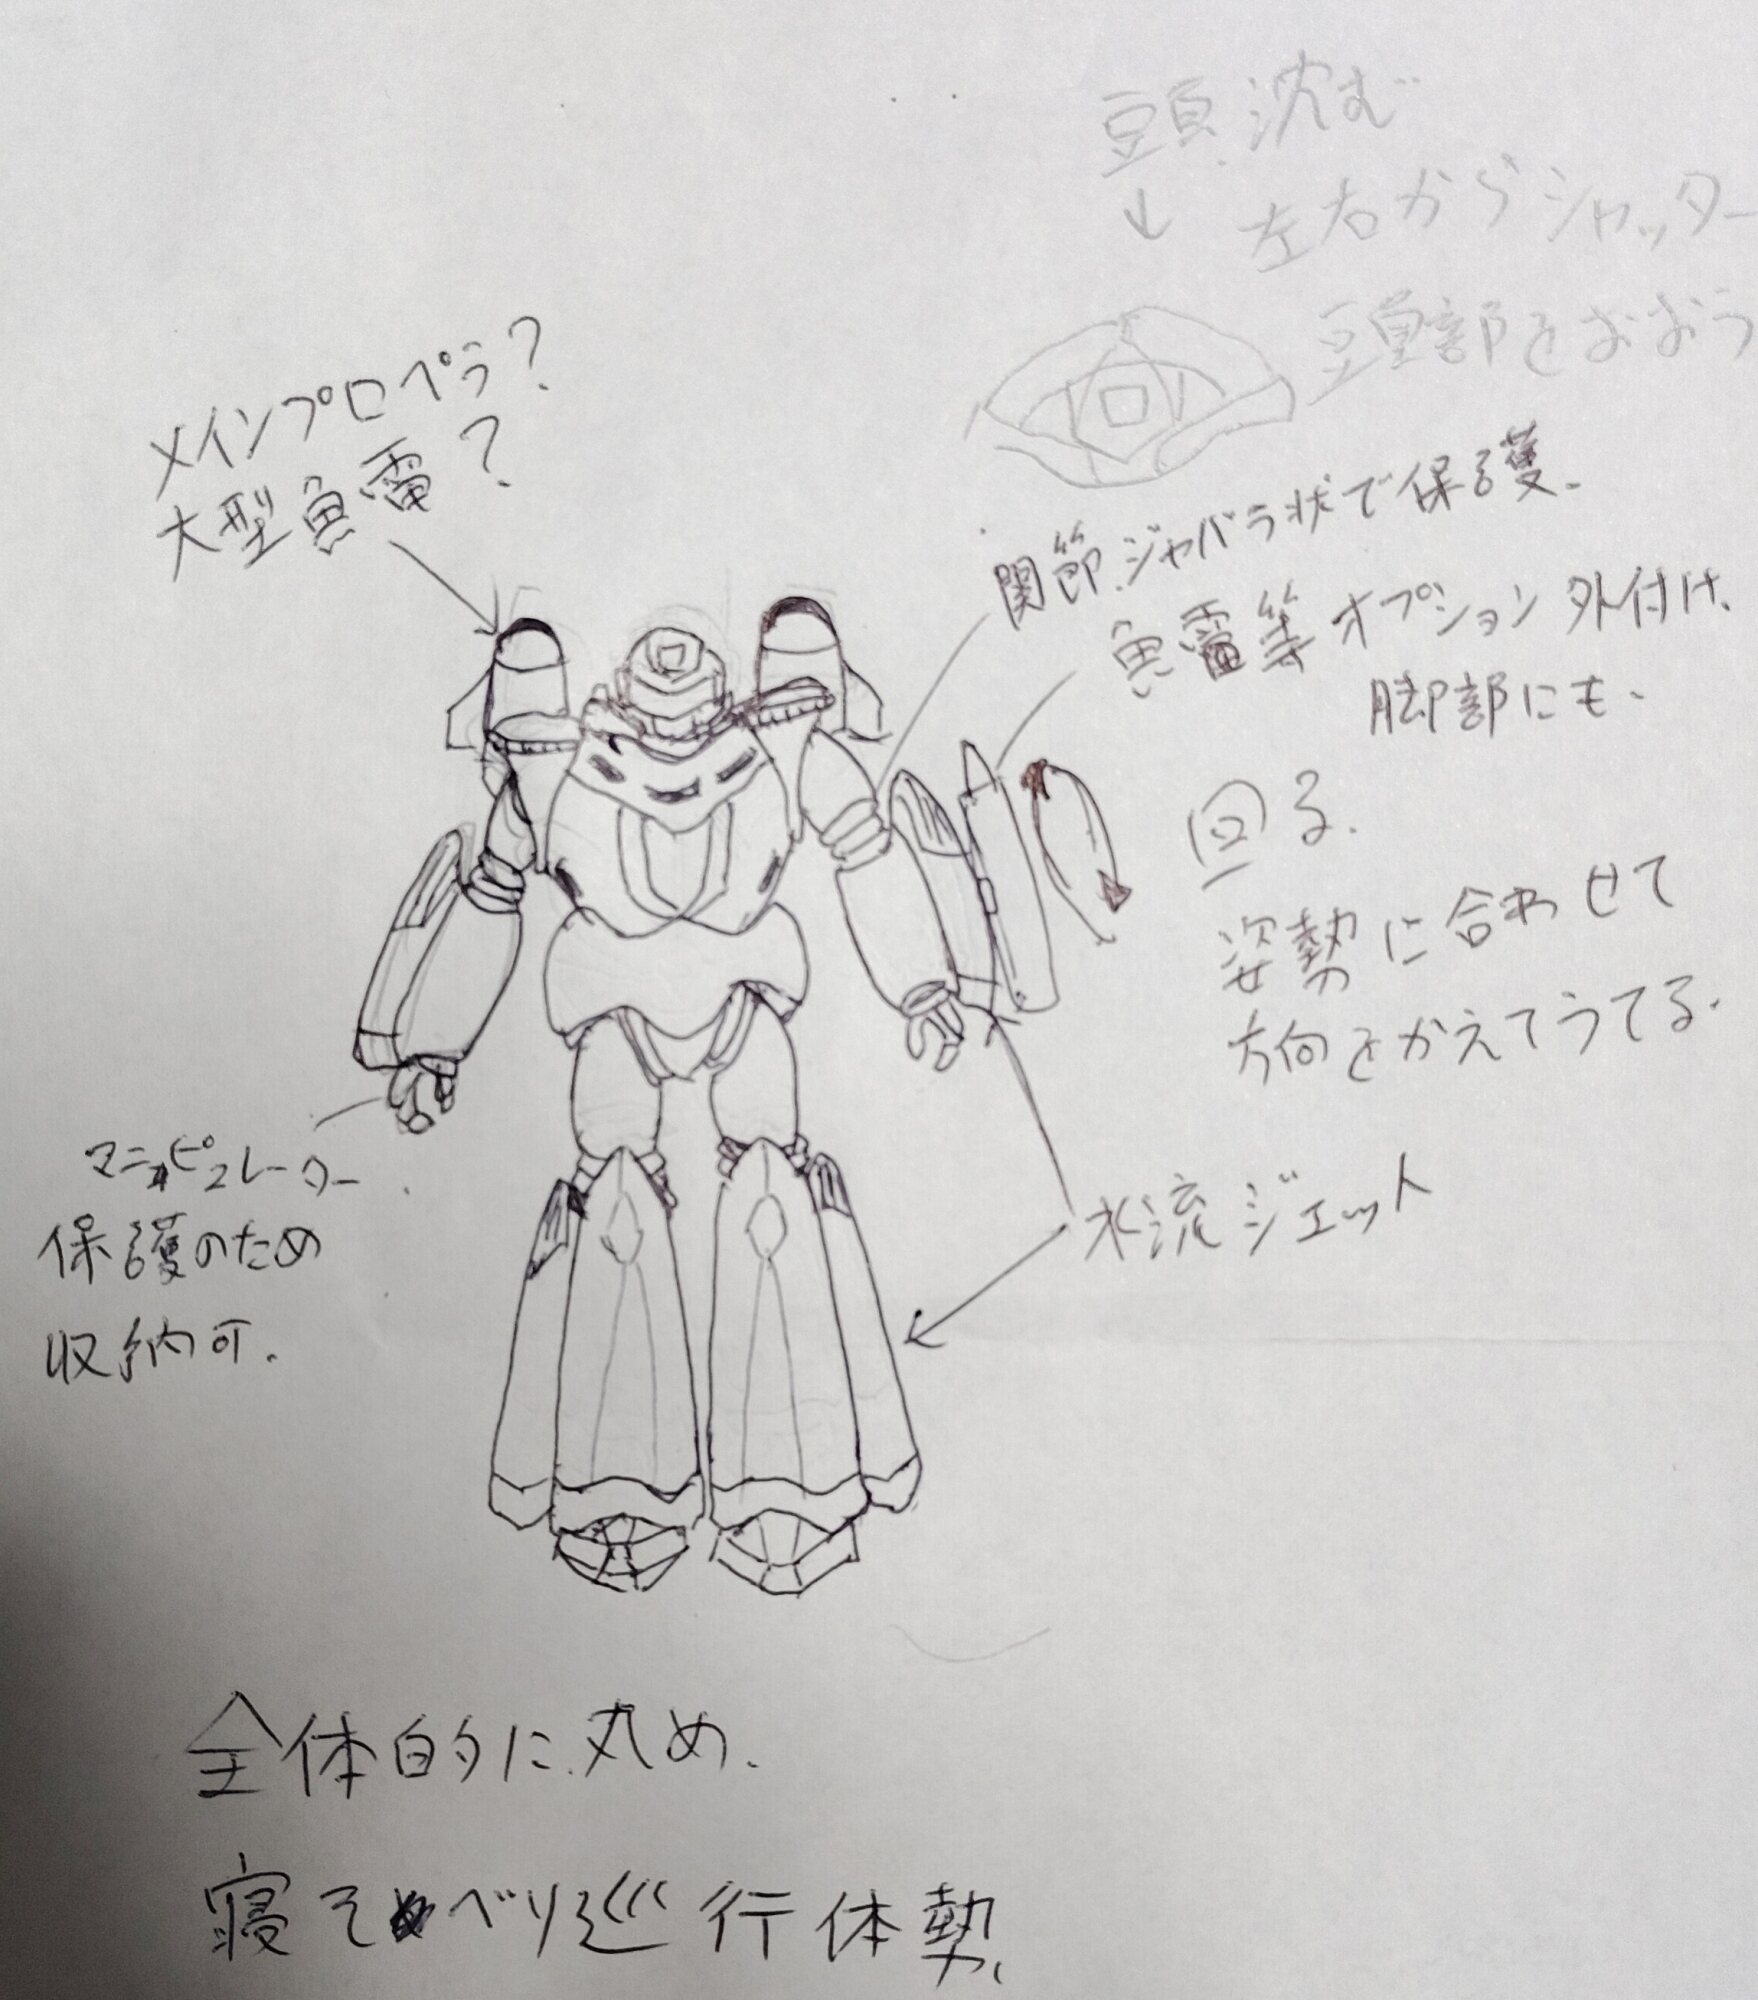 頭沈む
↓
左右からシャッター
頭部をおおう
メインプロペラ?
大型魚雷?
関節.ジャバラ状で保護.
魚雷等オプション外付け.
脚部にも.
回る.
姿勢に合わせて
方向をかえてうてる.
マニピュレーター
保護のため
収納可.
水流ジェット
全体的に.丸め.
寝そべり巡行体勢、